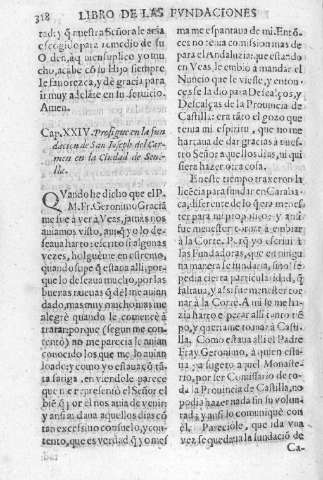 318 LIBRO DE LAS FVNDACIONES
rad: y q̃ nuestra Señora le auia
escogido para remedio de su
Orden, a quien suplico yo mu-
cho, acabe cõ su Hijo siempre
le fauorezca, y dè gracia para
ir muy adelãte en su seruicio.
Amen.
Cap. XXIV. Prosigue en la fun
dacion de San Joseph del Car-
men en la Ciudad de Seui-
lla.
QVando he dicho que el P.
M. Fr. Geronimo Graciã
me fue à ver à Veas, jamàs nos
auiamos visto, aunq̃ yo lo de-
seaua harto: escrito si algunas
vezes, holguème en estremo,
quando supe q̃ estaua alli: por-
que lo deseaua mucho, por las
buenas nueuas q̃ del me auian
dado, mas muy mucho mas me
alegrè quando le comencè à
tratar: porque (segun me con-
tentò) no me parecia le auian
conocido los que me lo auian
loado: y como yo estaua cõ tã-
ta fatiga, en viendole parece
que me representò el Señor el
biẽ q̃ por el nos auia de venir;
y ansi andaua aquellos dias cõ
tan excesiuo consuelo, y con-
tento, que es verdad q̃ yo mes
ma me espantaua de mi. Entõ-
ces no tenia comission mas de
para el Andaluzia: que estando
en Veas, le embiò à mandar el
Nuncio que le viesse, y enton-
ces se la diò para Descalços, y
Descalças de la Prouincia de
Castilla: era tãto el gozo que
tenia mi espiritu, que no me
hartaua de dar gracias à nues-
tro Señor aquellos dias, ni qui
siera hazer otra cosa.
En este tiempo traxeron la
licẽcia para fundar en Caraba-
ca, diferente de lo q̃ era menes
ter para mi proposito; y ansi
fue menester tornar à embiar
à la Corte. Porq̃ yo escriui à
las Fundadoras, que en ningu-
na manera se fundaria, sino se
pedia cierta particularidad, q̃
faltaua, y ansi fue menester tor
nar à la Corte. A mi se me ha-
zia harto esperar alli tanto tiẽ
po, y queriame tornar à Casti-
lla. Como estaua alli el Padre
Fray Geronimo, à quien esta-
ua ya sugeto aquel Monaste-
rio, por ser Comissario de to-
da la Prouincia de Castilla, no
podia hazer nada sin su volun-
tad, y ansi lo comuniquè con
èl. Pareciòle, que ida vna
vez se quedaua la fundaciõ de
Ca-